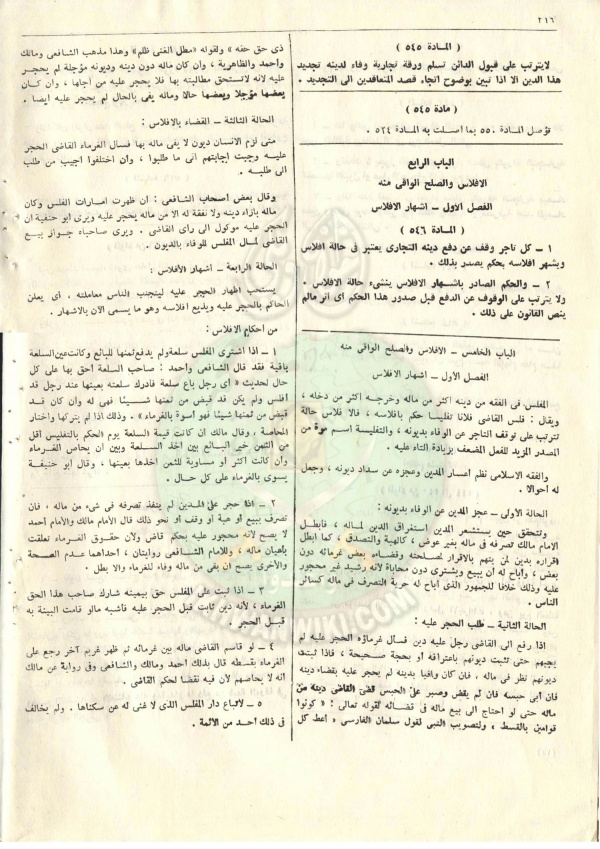 ٢١٦
( المادة ٥٤٥ )
لايترتب على قبول الدائن تسلم ورقة تجارية وفاء لدينه تجديد
هذا الدين الا اذا تبين بوضوح اتجاه قصد المتعاقدين الى التجديد .
( مادة ٥٤٥ )
تؤصل المادة ٥٥٠ بما اصلت به المادة ٥٢٤ .
الباب الرابع
الافلاس والصلح الواقى منه
الفصل الاول ــ اشهار الافلاس
( المادة ٥٤٦ )
١ ــ كل تاجر وقف عن دفع دينه التجارى يعتبر فى حالة افلاس
ويشهر افلاسه بحكم يصدر بذلك .
٢ ــ والحكم الصادر باشهار الافلاس ينشىء حالة الافلاس .
ولا يترتب على الوقوف عن الدفع قبل صدور هذا الحكم اى اثر مالم
ينص القانون على ذلك .
الباب الخامس ــ الافلاس والصلح الواقى منه
الفصل الاول ــ اشهار الافلاس
المفلس فى الفقه من دينه اكثر من ماله وخرجه اكثر من دخله ،
ويقال : فلس القاضى فلانا تفليسا حكم بافلاسه ، فالا فلاس حالة
تترتب على توقف التاجر عن الوفاء بديونه ، والتفليسة اسم مرة من
المصدر المزيد للفعل المضعف بزيادة التاء عليه .
والفقه الاسلامى نظم اعسار المدين وعجزه عن سداد ديونه ، وجعل
له أحوالا .
الحالة الأولى ــ عجز المدين عن الوفاء بديونه :
وتتحقق حين يستشعر المدين استغراق الدين لماله ، فأبطل
الامام مالك تصرفه فى ماله بغير عوض ، كالهبة والتصدق ، كما ابطل
اقراره بدين لمن يتهم بالاقرار لمصلحته وقضاءه بعض غرمائه دون
بعض ، وأباح له أن يبيع ويشترى دون محاباة لانه رشيد غير محجور
عليه وذلك خلافا للجمهور الذى أباح له حرية التصرف فى ماله كسائر
الناس .
الحالة الثانية ــ طلب الحجر عليه :
اذا رفع الى القاضى رجل عليه دين فسأل غرماؤه الحجر عليه لم
يجبهم حتى تثبت ديونهم باعترافه أو بحجة صحيحة ، فاذا ثبتت
ديونهم نظر فى ماله ، فان كان وافيا بدينه لم يحجر عليه بقضاء دينه
فأن أبي حبسه فان لم يقض وصبر على الحبس قضى القاضى دينه من
ماله حتى لو احتاج الى بيع ماله فى قضائه لقوله تعالى : « كونوا
قوامين بالقسط ، ولتصويب النبى لقول سلمان الفارسى « أعط كل
ذى حق حقه » ولقوله «مطل الغنى ظلم» وهذا مذهب الشافعى ومالك
وأحمد والظاهرية ، وان كان ماله دون دينه وديونه مؤجلة لم يحجر
عليه لانه لاتستحق مطالبته بها فلا يحجر عليه من أجلها ، وان كان
بعضها مؤجلا وبعضها حالا وماله يفى بالحال لم يحجر عليه ايضا .
الحالة الثالثة ــ القضاء بالافلاس :
متى لزم الانسان ديون لا يفى ماله بها فسأل الغرماء القاضى الحجر
عليه وجبت اجابتهم الى ما طلبوا ، وأن اختلفوا اجيب من طلب
الى طلبه .
وقال بعض أصحاب الشافعى : ان ظهرت امارات الفلس وكان
ماله بازاء دينه ولا نفقة له الا من ماله يحجر عليه ويرى ابو حنيفة ان
الحجر عليه موكول الى راى القاضى . ويرى صاحباه جواز بيع
القاضى لمال المفلس للوفاء بالديون .
الحالة الرابعة ــ اشهار الافلاس :
يستحب اظهار الحجر عليه ليتجنب الناس معاملته ، أى يعلن
الحاكم بالحجر عليه ويذيع افلاسه وهو ما يسمى الآن بالاشهار .
من أحكام الافلاس :
١ ــ اذا اشترى المفلس سلعة ولم يدفع ثمنها للبائع وكانت عين السلعة
باقية فقد قال الشافعى وأحمد : صاحب السلعة أحق بها على كل
حال لحديث « أى رجل باع سلعة فأدرك سلعته بعينها عند رجل قد
أفلس ولم يكن قد قبض من ثمنها شيئا فهى له وان كان قد
قبض من ثمنها شيئا فهو أسوة بالغرماء » . وذلك اذا لم يتركها واختار
المحاصة ، وقال مالك ان كانت قيمة السلعة يوم الحكم بالتفليس أقل
من الثمن خير البائع بين اخذ السلعة وبين أن يحاص الغرماء
وأن كانت أكثر أو مساوية للثمن أخذها بعينها ، وقال أبو حنيفة
يسوى بالغرماء على كل حال .
٢ ــ اذا حجر على المدين لم ينفذ تصرفه فى شىء من ماله ، فان
تصرف ببيع أو هبة أو وقف أو نحو ذلك قال الامام مالك والامام أحمد
لا يصح لانه محجور عليه بحكم قاض ولان حقوق الغرماء تعلقت
باعيان ماله ، وللامام الشافعى روايتان ، احداهما عدم الصحة
والأخرى يصح ان بقى من ماله وفاء للغرماء والا بطل .
٣ ــ اذا ثبت على المفلس حق ببينة شارك صاحب هذا الحق
الغرماء ، لانه دين ثابت قبل الحجر عليه فأشبه مالو قامت البينة به
قبل الحجر .
٤ ــ لو قاسم القاضى ماله بين غرمائه ثم ظهر غريم آخر رجع على
الغرماء بقسطه قال بذلك أحمد ومالك والشافعى وفى رواية عن مالك
انه لا يحاصهم لأن فيه نقضا لحكم القاضى .
٥ ــ لاتباع دار المفلس الذى لا غنى له عن سكناها . ولم يخالف
فى ذلك أحد من الأئمة .